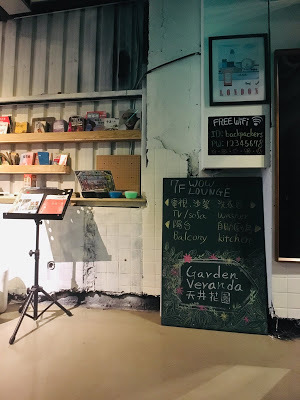 LONDON
FREE WiFi
ID: backpackers
PW: 12345678
7F WOW
LOUNGE
電視, 沙發 洗衣機
TV/sofa washer
陽台
Balcony kitchen
Garden
Veranda
天井花園